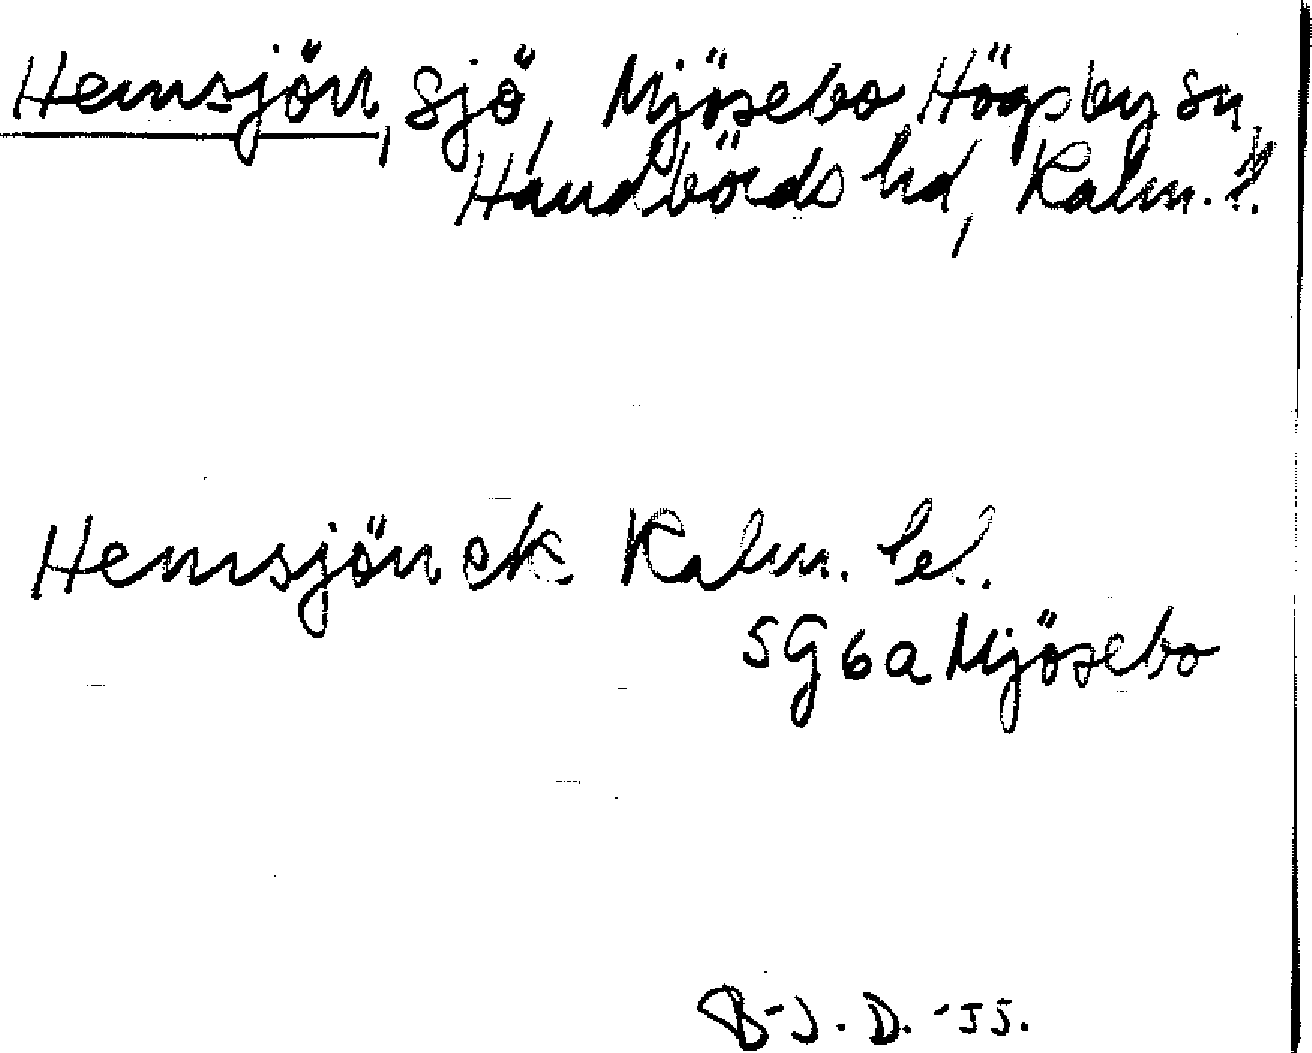 Hemsjön, sjö, Mjösebo, Högsby sn,
Handbörds hd, Kalm. l.
Hemsjön ek Kalm. l.
SG 6a Mjösebo
B-J. D. -55.